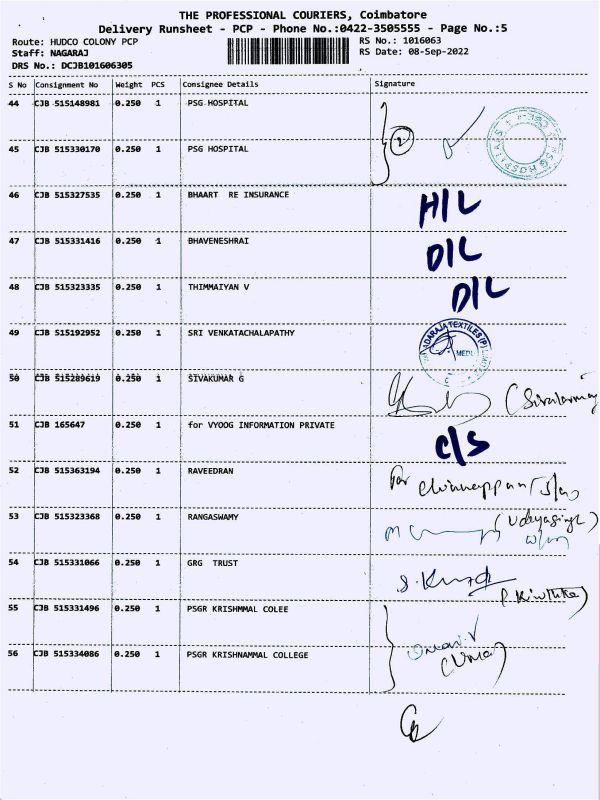 THE PROFESSIONAL COURIERS, Coimbatore
Delivery Runsheet - PCP - Phone No.:0422-3505555 - Page No.:5
Route: HUDCO COLONY PCP RS No.: 1016063
Staff: NAGARAJ RS Date: 08-Sep-2022
DRS No.: DCJB101606305
S No Consignment No Weight PCS Consignee Details Signature
44 CJB 515148981 0.250 1 PSG HOSPITAL
2
45 CJB 515330170 0.250 1 PSG HOSPITAL
46 CJB 515327535 0.250 1 BHAART RE INSURANCE H/L
47 CJB 515331416 0.250 1 BHAVENESHRAI D/L
48 CJB 515323335 0.250 1 THIMMAIYAN V D/L
49 CJB 515192952 0.250 1 SRI VENKATACHALAPATHY
50 CJB 515289619 0.250 1 SIVAKUMAR G
51 CJB 165647 0.250 1 for VYOOG INFORMATION PRIVATE C/S
52 CJB 515363194 0.250 1 RAVEEDRAN For
53 CJB 515323368 0.250 1 RANGASWAMY
54 CJB 515331066 0.250 1 GRG TRUST
55 CJB 515331496 0.250 1 PSGR KRISHMMAL COLEE
56 CJB 515334086 0.250 1 PSGR KRISHNAMMAL COLLEGE (Uma)